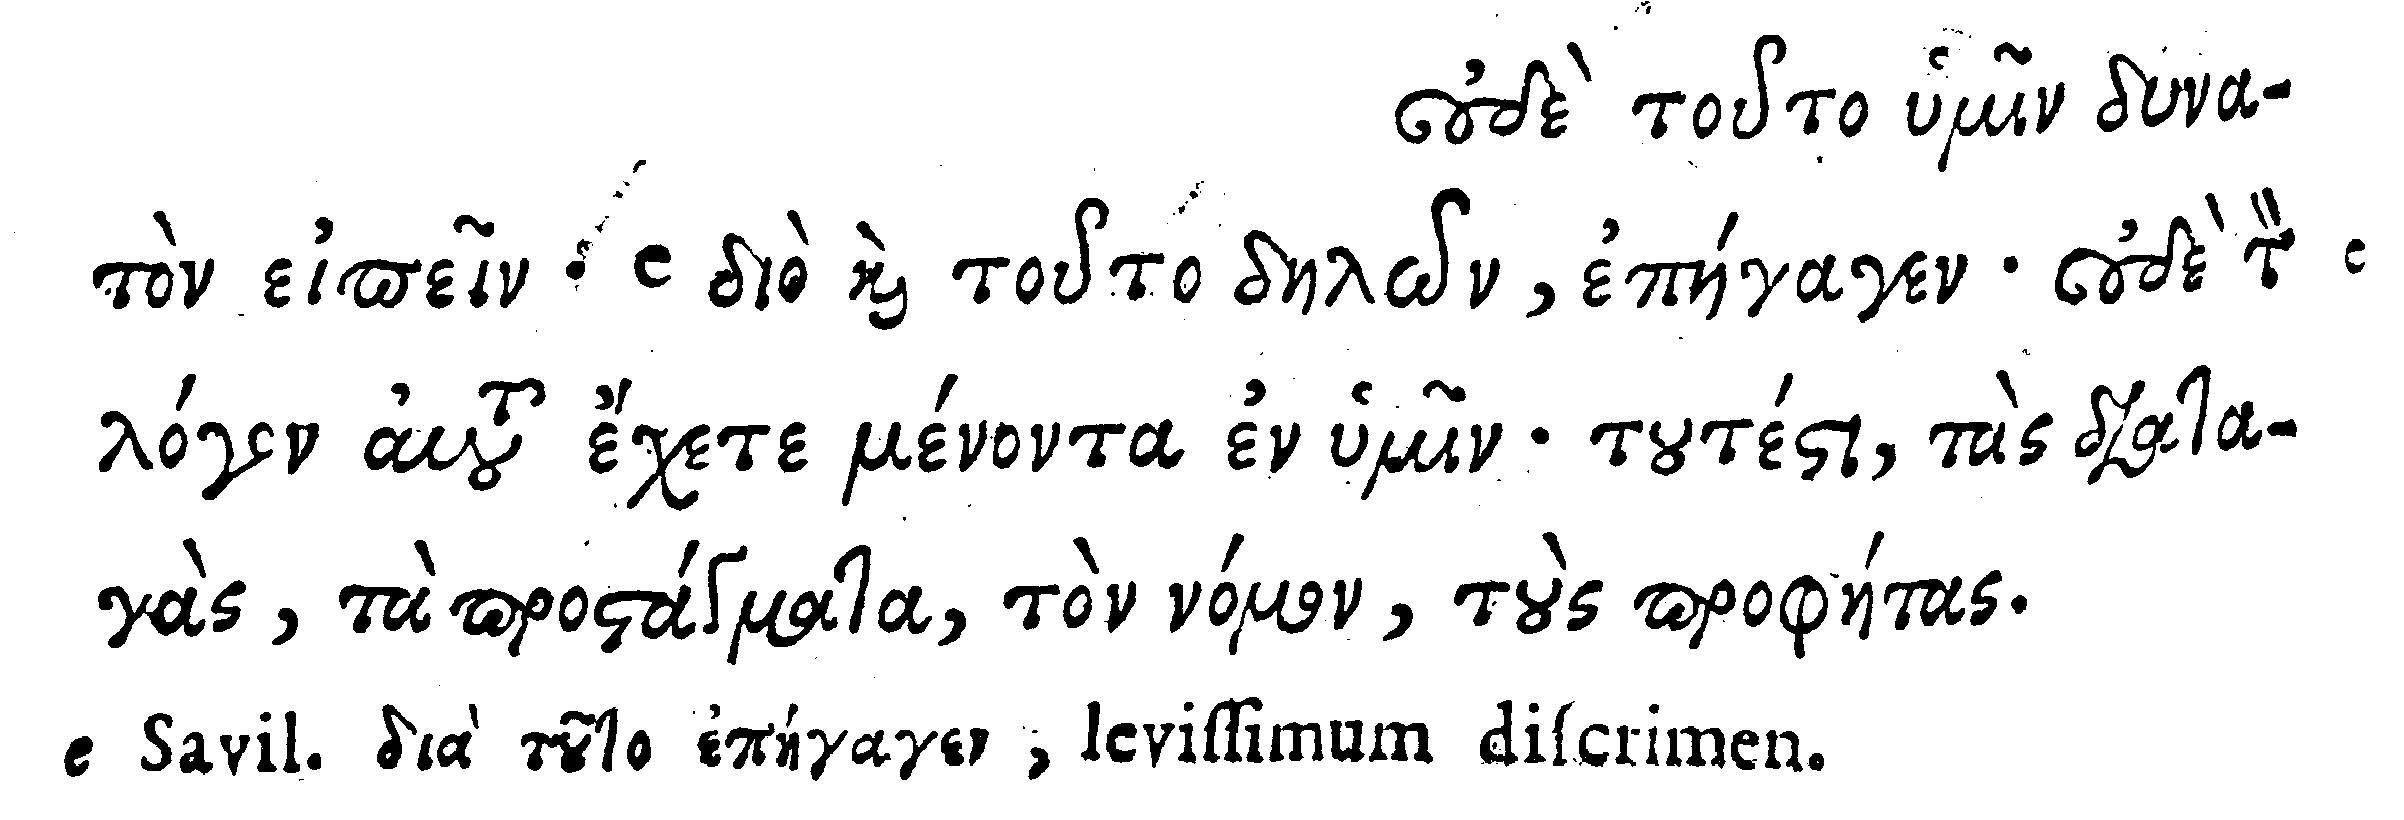 οὐδὲ τοῦτο ὑμῖν δυνα-
τὸν εἰπεῖν · e διὸ καὶ τοῦτο δηλῶν, ἐπήγαγεν · οὐδὲ τὸν e
λόγον αὐτοῦ ἔχετε μένοντα ἐν ὑμῖν · τουτέστι, τὰς διατα-
γὰς, τὰ προστάγματα, τὸν νόμον, τοὺς προφήτας.
e Savil. διὰ τοῦτο ἐπήγαγεν, leviſſimum diſcrimen.